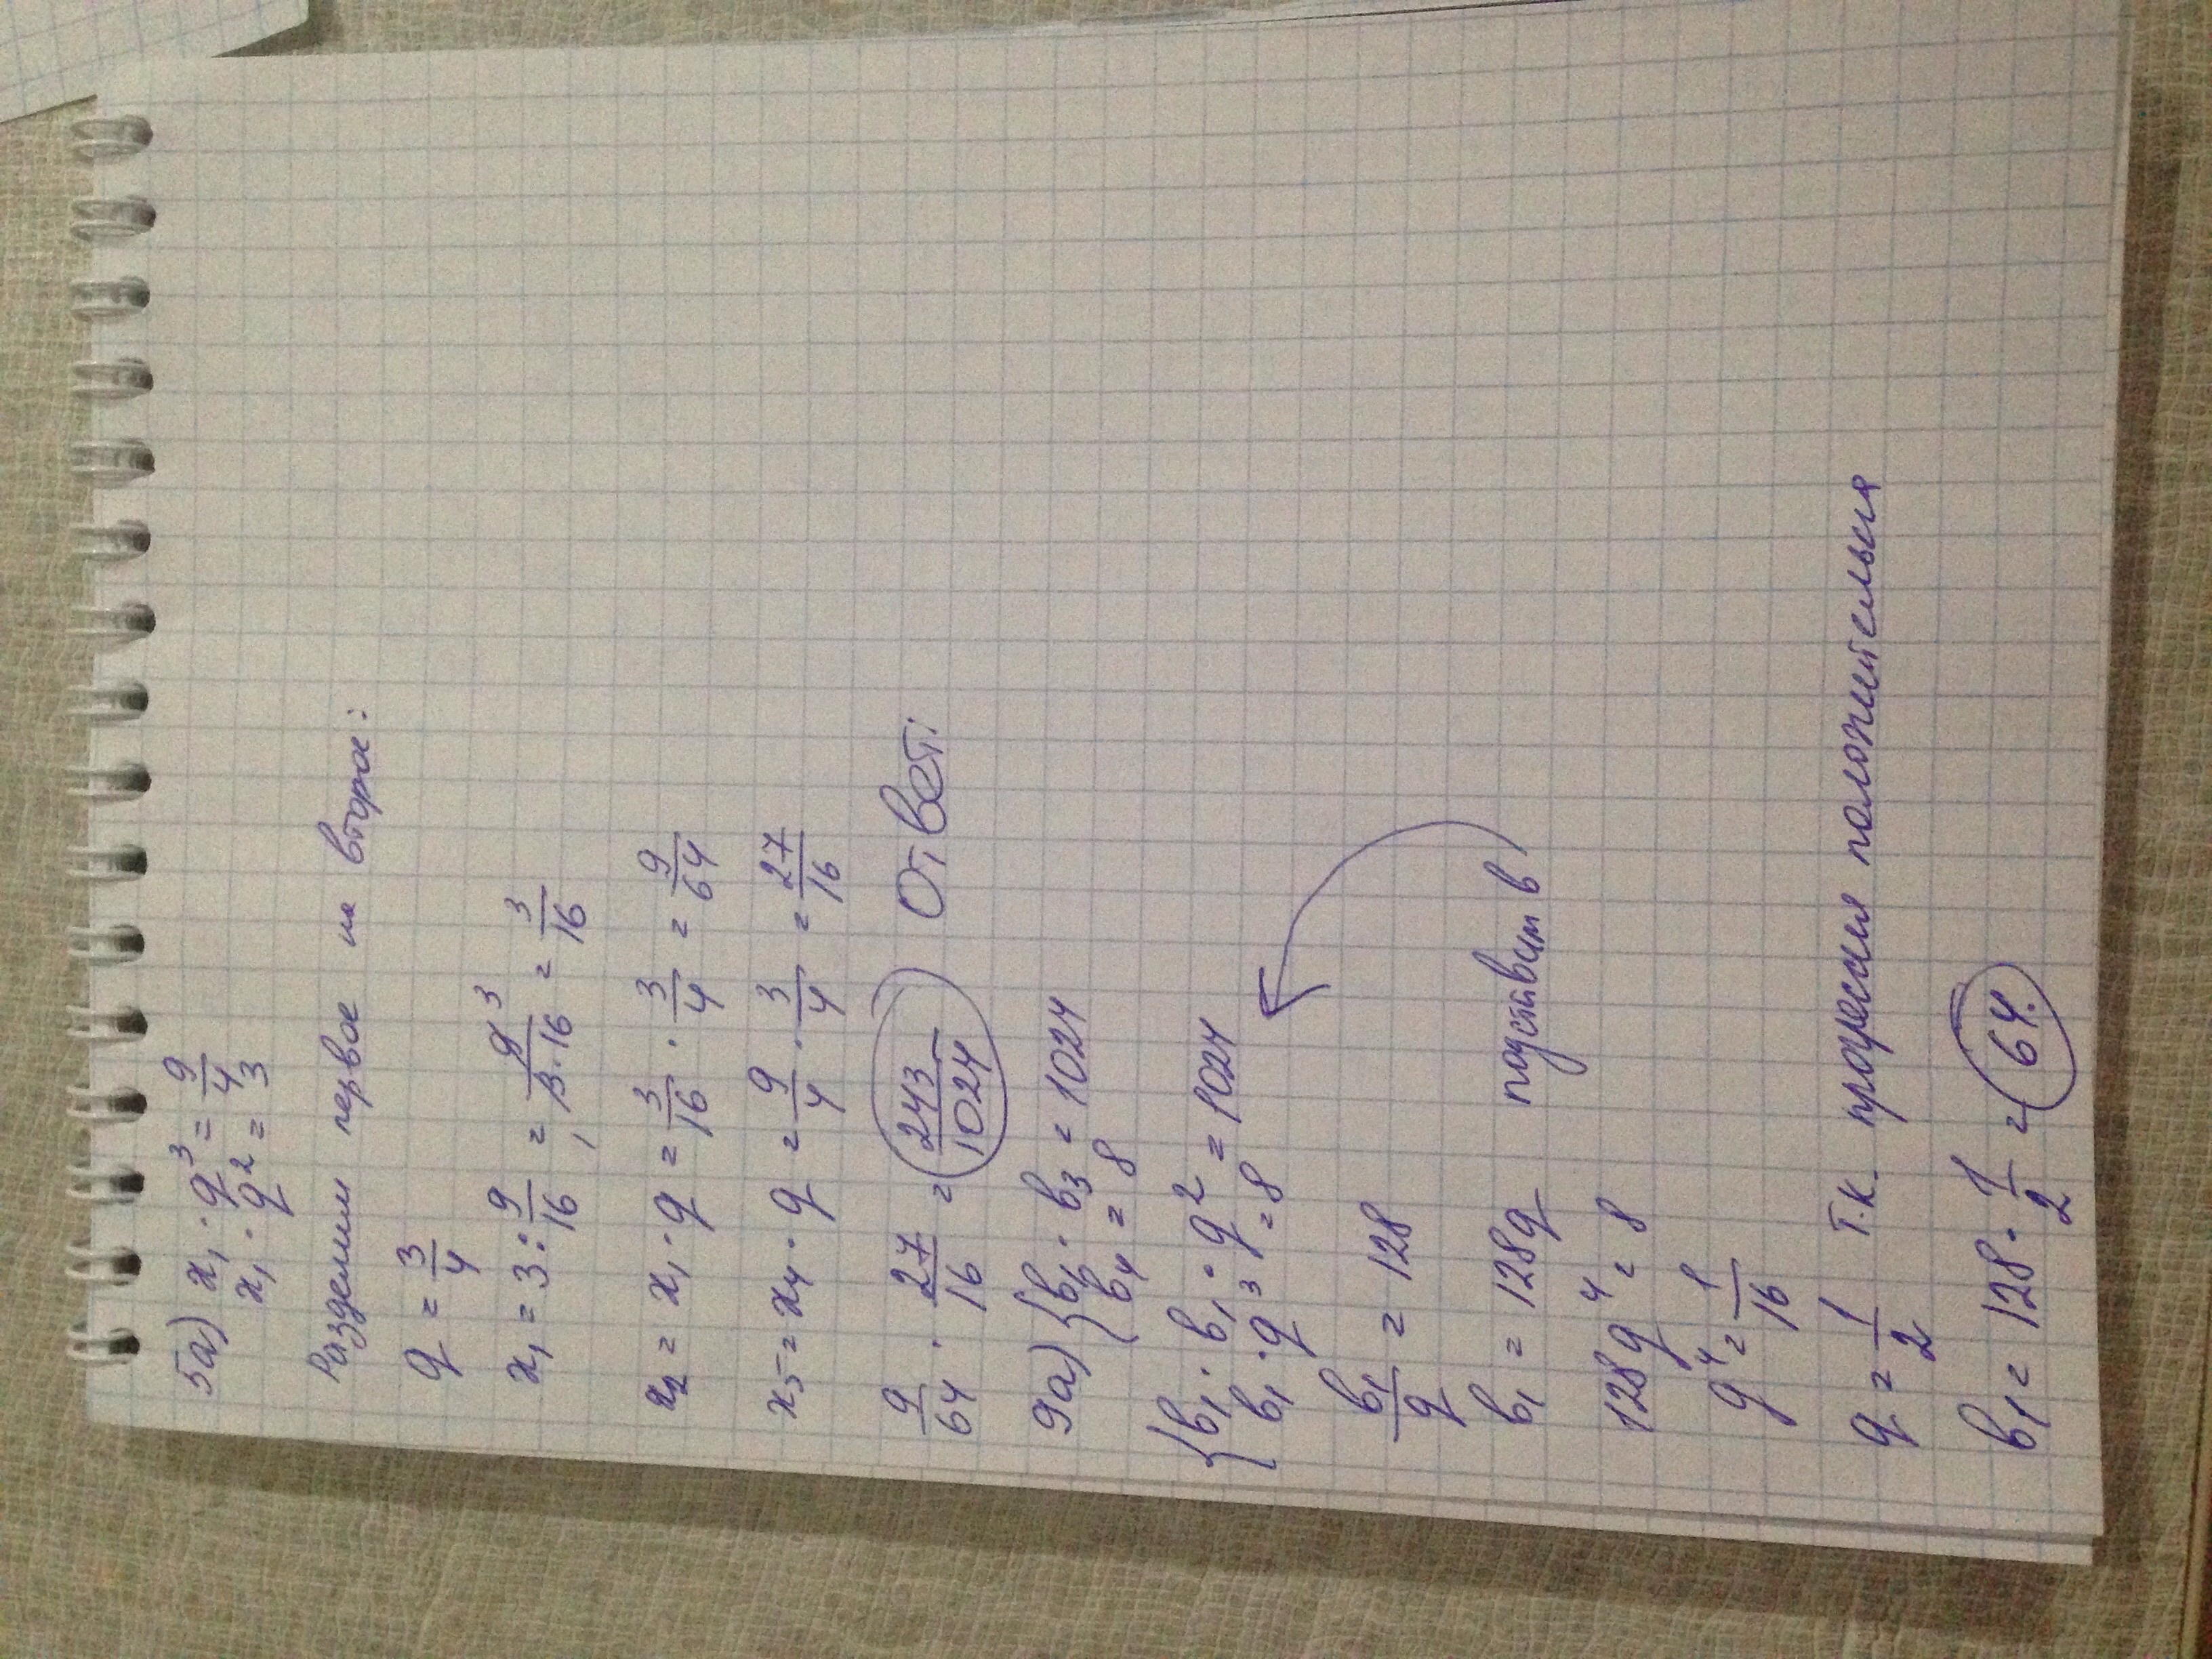 5а) x₁·q³ = 9/4
x₁·q² = 3
Разделим первое на второе:
q = 3/4
x₁ = 3 : 9/16 = 9³/3·16 = 3/16
x₂ = x₁·q = 3/16 · 3/4 = 9/64
x₅ = x₄·q = 9/4 · 3/4 = 27/16
9/64 · 27/16 = 243/1024 Ответ:
9а) { b₁·b₃ = 1024
b₄ = 8
{ b₁·b₁·q² = 1024
b₁·q³ = 8
b₁/q = 128
b₁ = 128q подставим в
128q⁴ = 8
q⁴ = 1/16
q = 1/2 т.к. прогресия положительная
b₁ = 128 · 1/2 = 64.